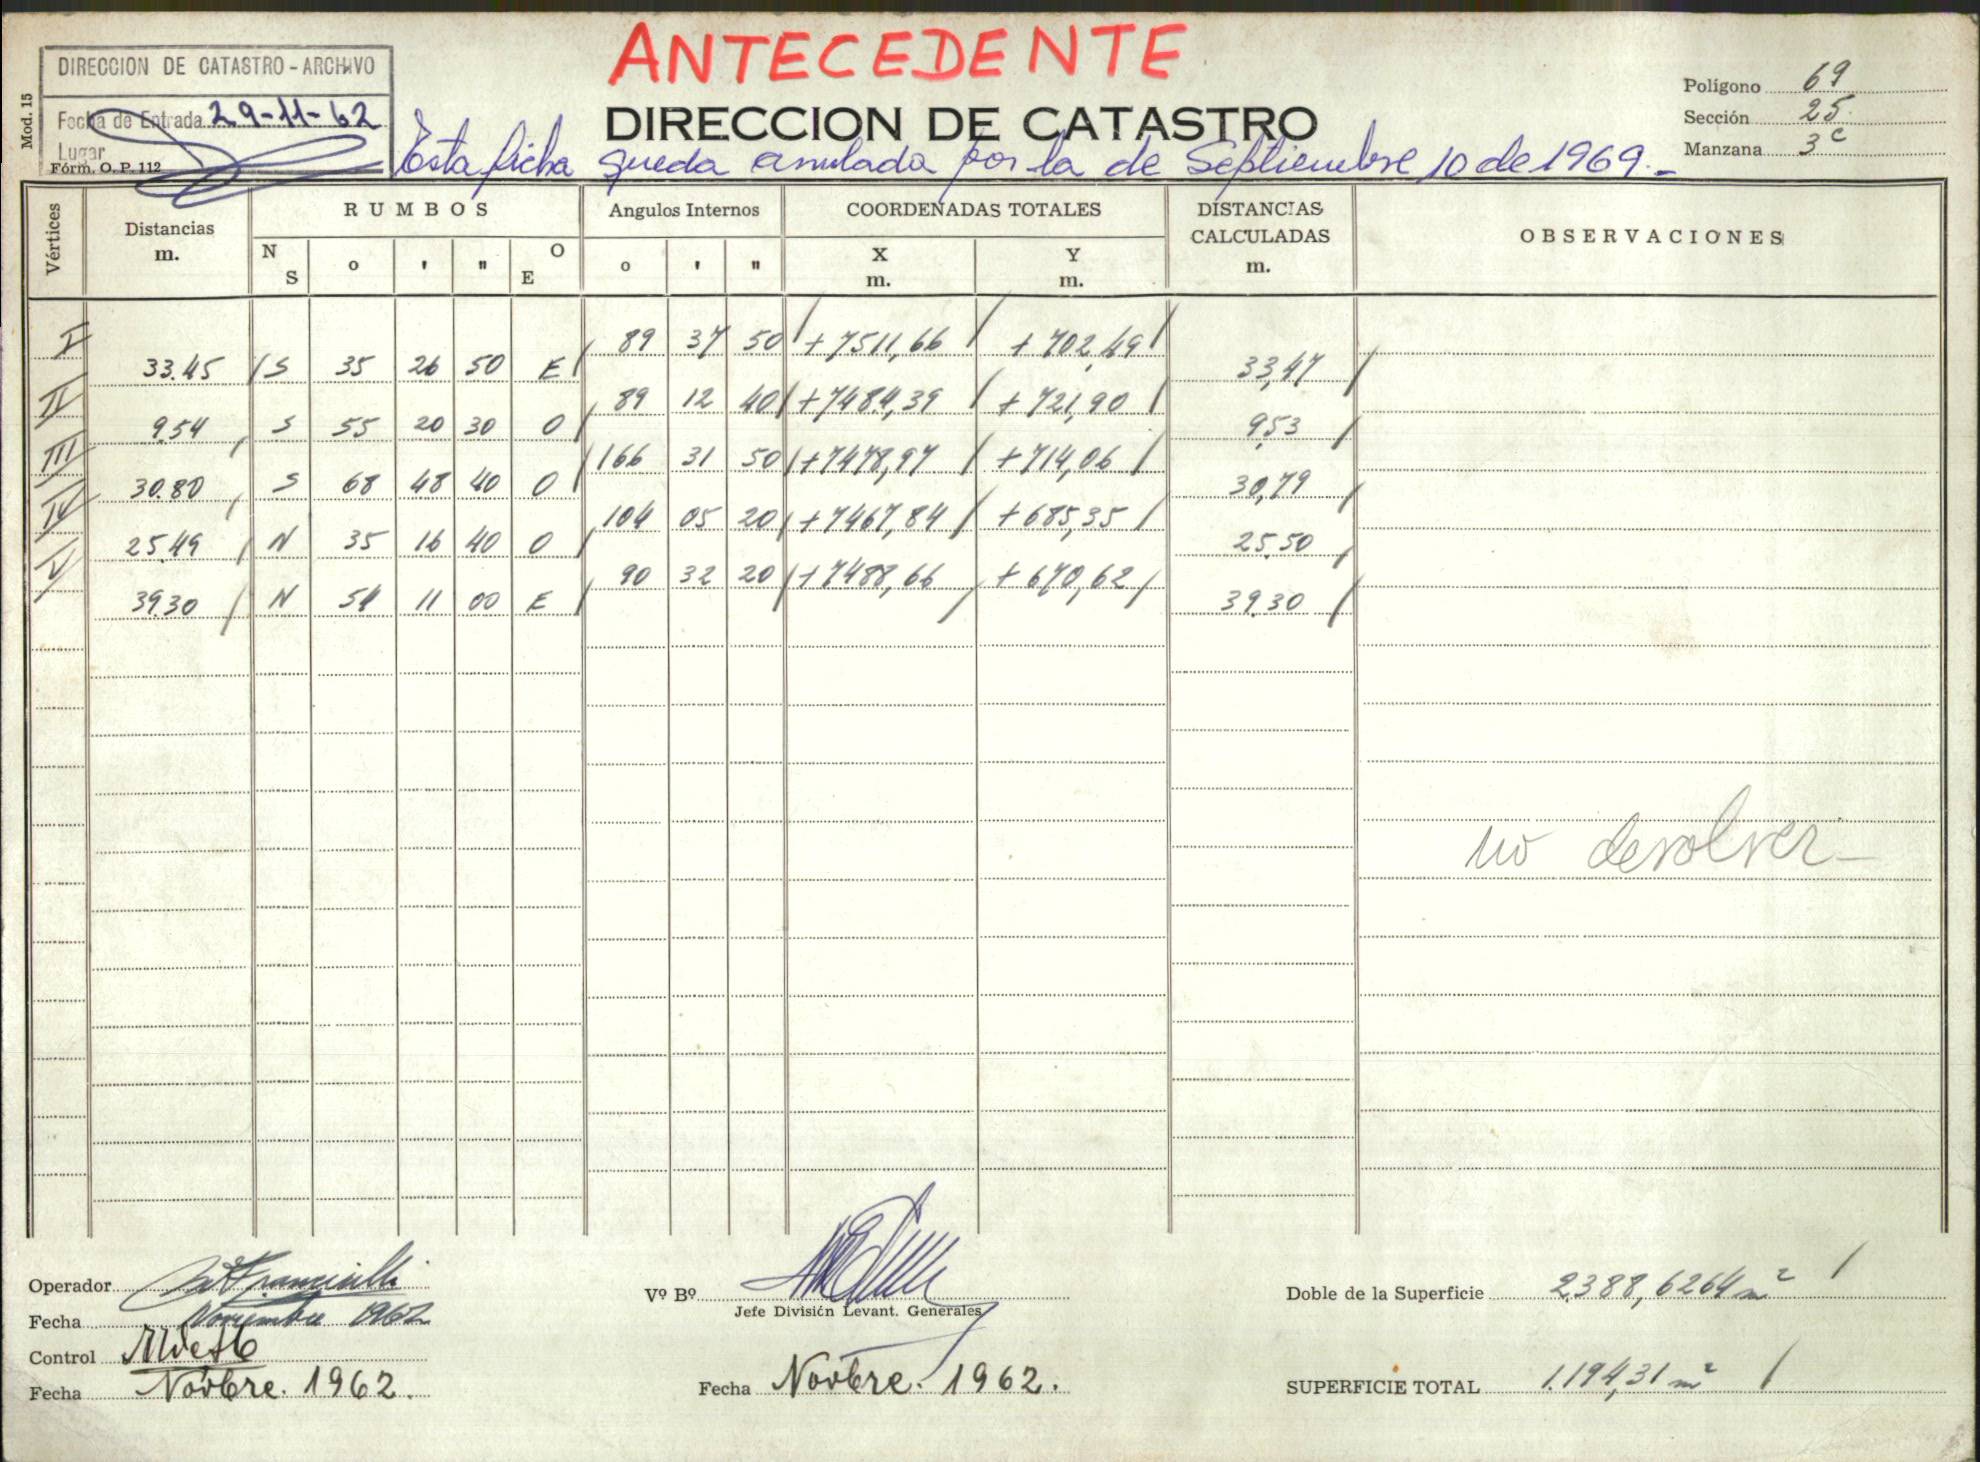 ANTECEDENTE
DIRECCION DE CATASTRO - ARCHIVO
Fecha de Entrada 29-11-62
Lugar
Mod. 15
Fórm. O. P. 112
DIRECCION DE CATASTRO
Esta ficha queda anulada por la de Septiembre 10 de 1969.-
Polígono 69
Sección 25
Manzana 3c
Vértices Distancias m. RUMBOS Angulos Internos COORDENADAS TOTALES DISTANCIAS CALCULADAS m. OBSERVACIONES
N S o ' " O E o ' " X m. Y m.
I 89 37 50 +7511,66 +702,49
33.45 S 35 26 50 E 33,47
II 89 12 40 +7484,39 +721,90
9.54 S 55 20 30 O 9,53
III 166 31 50 +7478,97 +714,06
30.80 S 68 48 40 O 30,79
IV 104 05 20 +7467,84 +685,35
25.49 N 35 16 40 O 25.50
V 90 32 20 +7488,66 +670,62
39.30 N 54 11 00 E 39.30
no devolver-
Operador
Fecha Noviembre 1962
Control
Fecha Novbre. 1962.
Vº Bº
Jefe División Levant. Generales
Fecha Novbre. 1962.
Doble de la Superficie 2388,6264 m²
SUPERFICIE TOTAL 1.194,31 m²